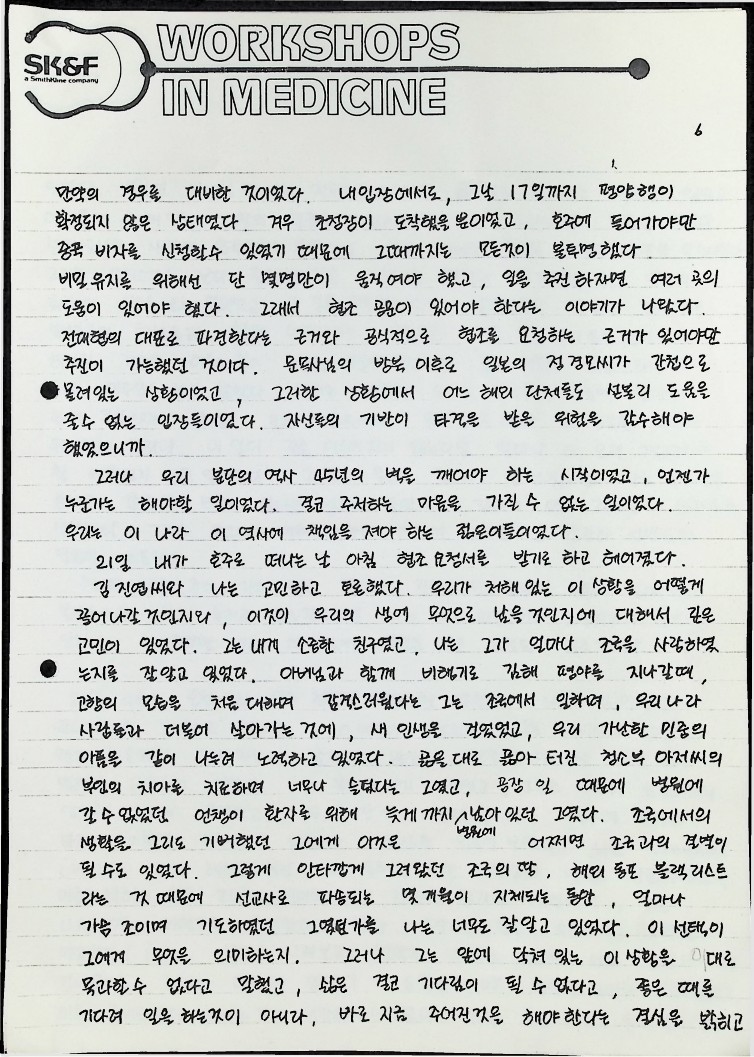 SK&F
a SmithKline company
WORKSHOPS
IN MEDICINE
6
만약의 경우를 대비한 것이었다. 내입장에서도, 그날 17일까지 평양행이
확정되지 않은 상태였다. 겨우 초청장이 도착했을 뿐이었고, 호주에 들어가야만
중국 비자를 신청할수 있었기 때문에 그때까지는 모든것이 불투명했다.
비밀 유지를 위해선 단 몇명만이 움직여야 했고, 일을 추진하자면 여러 곳의
도움이 있어야 했다. 그래서 협조 공문이 있어야 한다는 이야기가 나왔다.
전대협의 대표로 파견한다는 근거와 공식적으로 협조를 요청하는 근거가 있어야만
추진이 가능했던 것이다. 문목사님의 방북 이후로 일본의 정경모씨가 간첩으로
몰려있는 상황이었고, 그러한 상황에서 어느 해외 단체들도 선불리 도움을
줄수 없는 입장들이었다. 자신들의 기반이 타격을 받을 위험을 감수해야
했었으니까.
그러나 우리 분단의 역사 45년의 벽을 깨어야 하는 시작이었고, 언젠가
누군가는 해야할 일이었다. 결코 주저하는 마음을 가질 수 없는 일이었다.
우리는 이 나라 이 역사에 책임을 져야 하는 젊은이들이었다.
21일 내가 호주로 떠나는 날 아침 협조 요청서를 받기로 하고 헤어졌다.
김진엽씨와 나는 고민하고 토론했다. 우리가 처해 있는 이 상황을 어떻게
끌어나갈 것인지와, 이것이 우리의 생에 무엇으로 남을 것인지에 대해서 깊은
고민이 있었다. 그는 내게 소중한 친구였고, 나는 그가 얼마나 조국을 사랑하였
는지를 잘 알고 있었다. 아버님과 함께 비행기로 김해 평야를 지나갈때,
고향의 모습을 처음 대하며 감격스러웠다는 그는 조국에서 일하며, 우리나라
사람들과 더불어 살아가는 것에, 새 인생을 걸었었고, 우리 가난한 민중의
아픔을 같이 나누려 노력하고 있었다. 곪을대로 곪아 터진 청소부 아저씨의
부인의 치아를 치료하며 너무나 슬펐다는 그였고, 공장 일 때문에 병원에
갈 수 없었던 언챙이 환자를 위해 늦게까지 병원에 남아 있던 그였다. 조국에서의
생활을 그리도 기뻐했던 그에게 이것은 어쩌면 조국과의 결별이
될 수도 있었다. 그렇게 안타깝게 그려왔던 조국의 땅, 해외 동포 블랙리스트
라는 것 때문에 선교사로 파송되는 몇개월이 지체되는 동안, 얼마나
가슴 조이며 기도하였던 그였던가를 나는 너무도 잘 알고 있었다. 이 선택이
그에게 무엇을 의미하는지. 그러나 그는 앞에 닥쳐 있는 이 상황을 이대로
묵과할수 없다고 말했고, 삶은 결코 기다림이 될 수 없다고, 좋은 때를
기다려 일을 하는것이 아니라, 바로 지금 주어진것을 해야한다는 결심을 밝히고